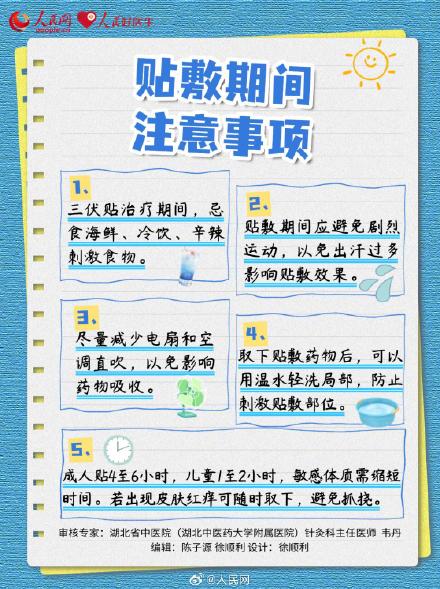 人民网
people.cn
人民好医生
贴敷期间
注意事项
1、
三伏贴治疗期间，忌
食海鲜、冷饮、辛辣
刺激食物。
2、
贴敷期间应避免剧烈
运动，以免出汗过多
影响贴敷效果。
3、
尽量减少电扇和空
调直吹，以免影响
药物吸收。
4、
取下贴敷药物后，可以
用温水轻洗局部，防止
刺激贴敷部位。
5、
成人贴4至6小时，儿童1至2小时，敏感体质需缩短
时间。若出现皮肤红痒可随时取下，避免抓挠。
审核专家：湖北省中医院（湖北中医药大学附属医院）针灸科主任医师 韦丹
编辑：陈子源 徐顺利 设计：徐顺利
@人民网